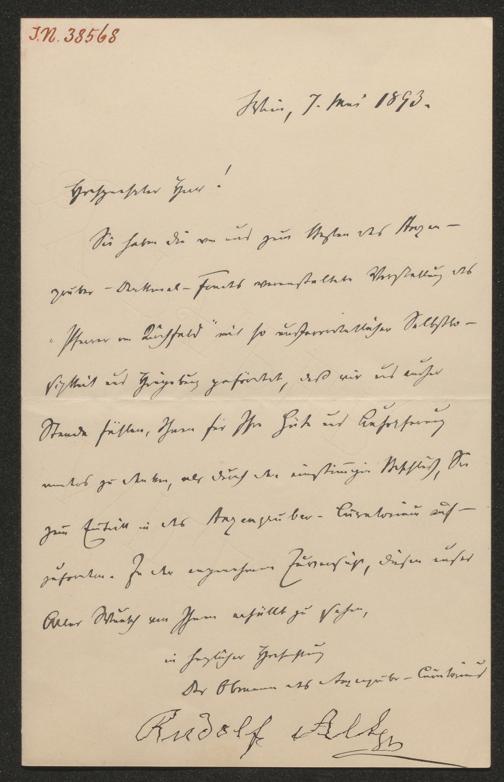 J.N. 38568
Wien, 7. Mai 1893.
Hochgeehrter Herr!
Sie haben die von uns zum Besten des Anzen-
gruber-Denkmal-Fonds veranstaltete Vorstellung des
"Pfarrer von Kirchfeld" mit so außerordentlicher Selbstlo-
sigkeit und Hingebung gefördert, daß wir uns außer
Stande fühlen, Ihnen für Ihre Güte und Aufopferung
anders zu danken, als durch den einstimmigen Beschluß, Sie
zum Eintritt in das Anzengruber-Curatorium auf-
zufordern. In der angenehmen Zuversicht, diesen unser
Aller Wunsch von Ihnen erfüllt zu sehen,
in herzlicher Hochachtung
Der Obmann des Anzengruber-Curatoriums
Rudolf Alt